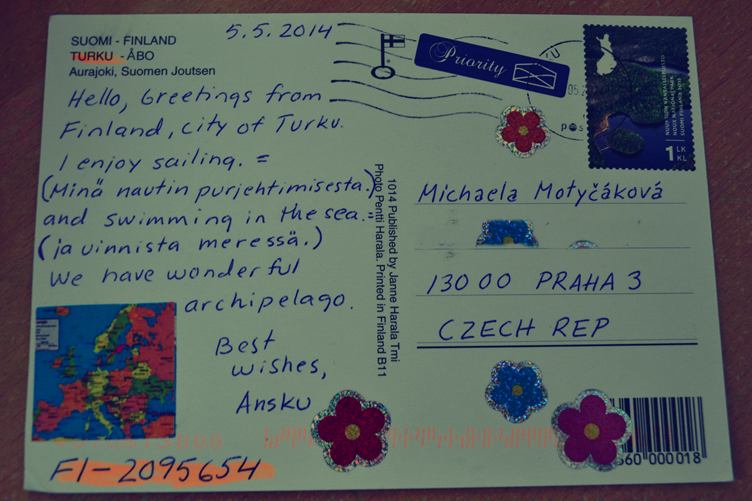 SUOMI - FINLAND
TURKU - ÅBO
Aurajoki, Suomen Joutsen
5.5.2014
Hello, Greetings from
Finland, city of Turku.
I enjoy sailing. =
(Minä nautin purjehtimisesta.)
and swimming in the sea."
(ja uinnista meressä.)
We have wonderful
archipelago.
Best
wishes,
Ansku
FI-2095654
1014 Published by Janne Harala Tmi
Photo Pentti Harala. Printed in Finland B11
Priority
1 LK
KL
SUOMI FINLAND
Michaela Motyčáková
130 00 PRAHA 3
CZECH REP
560 000018